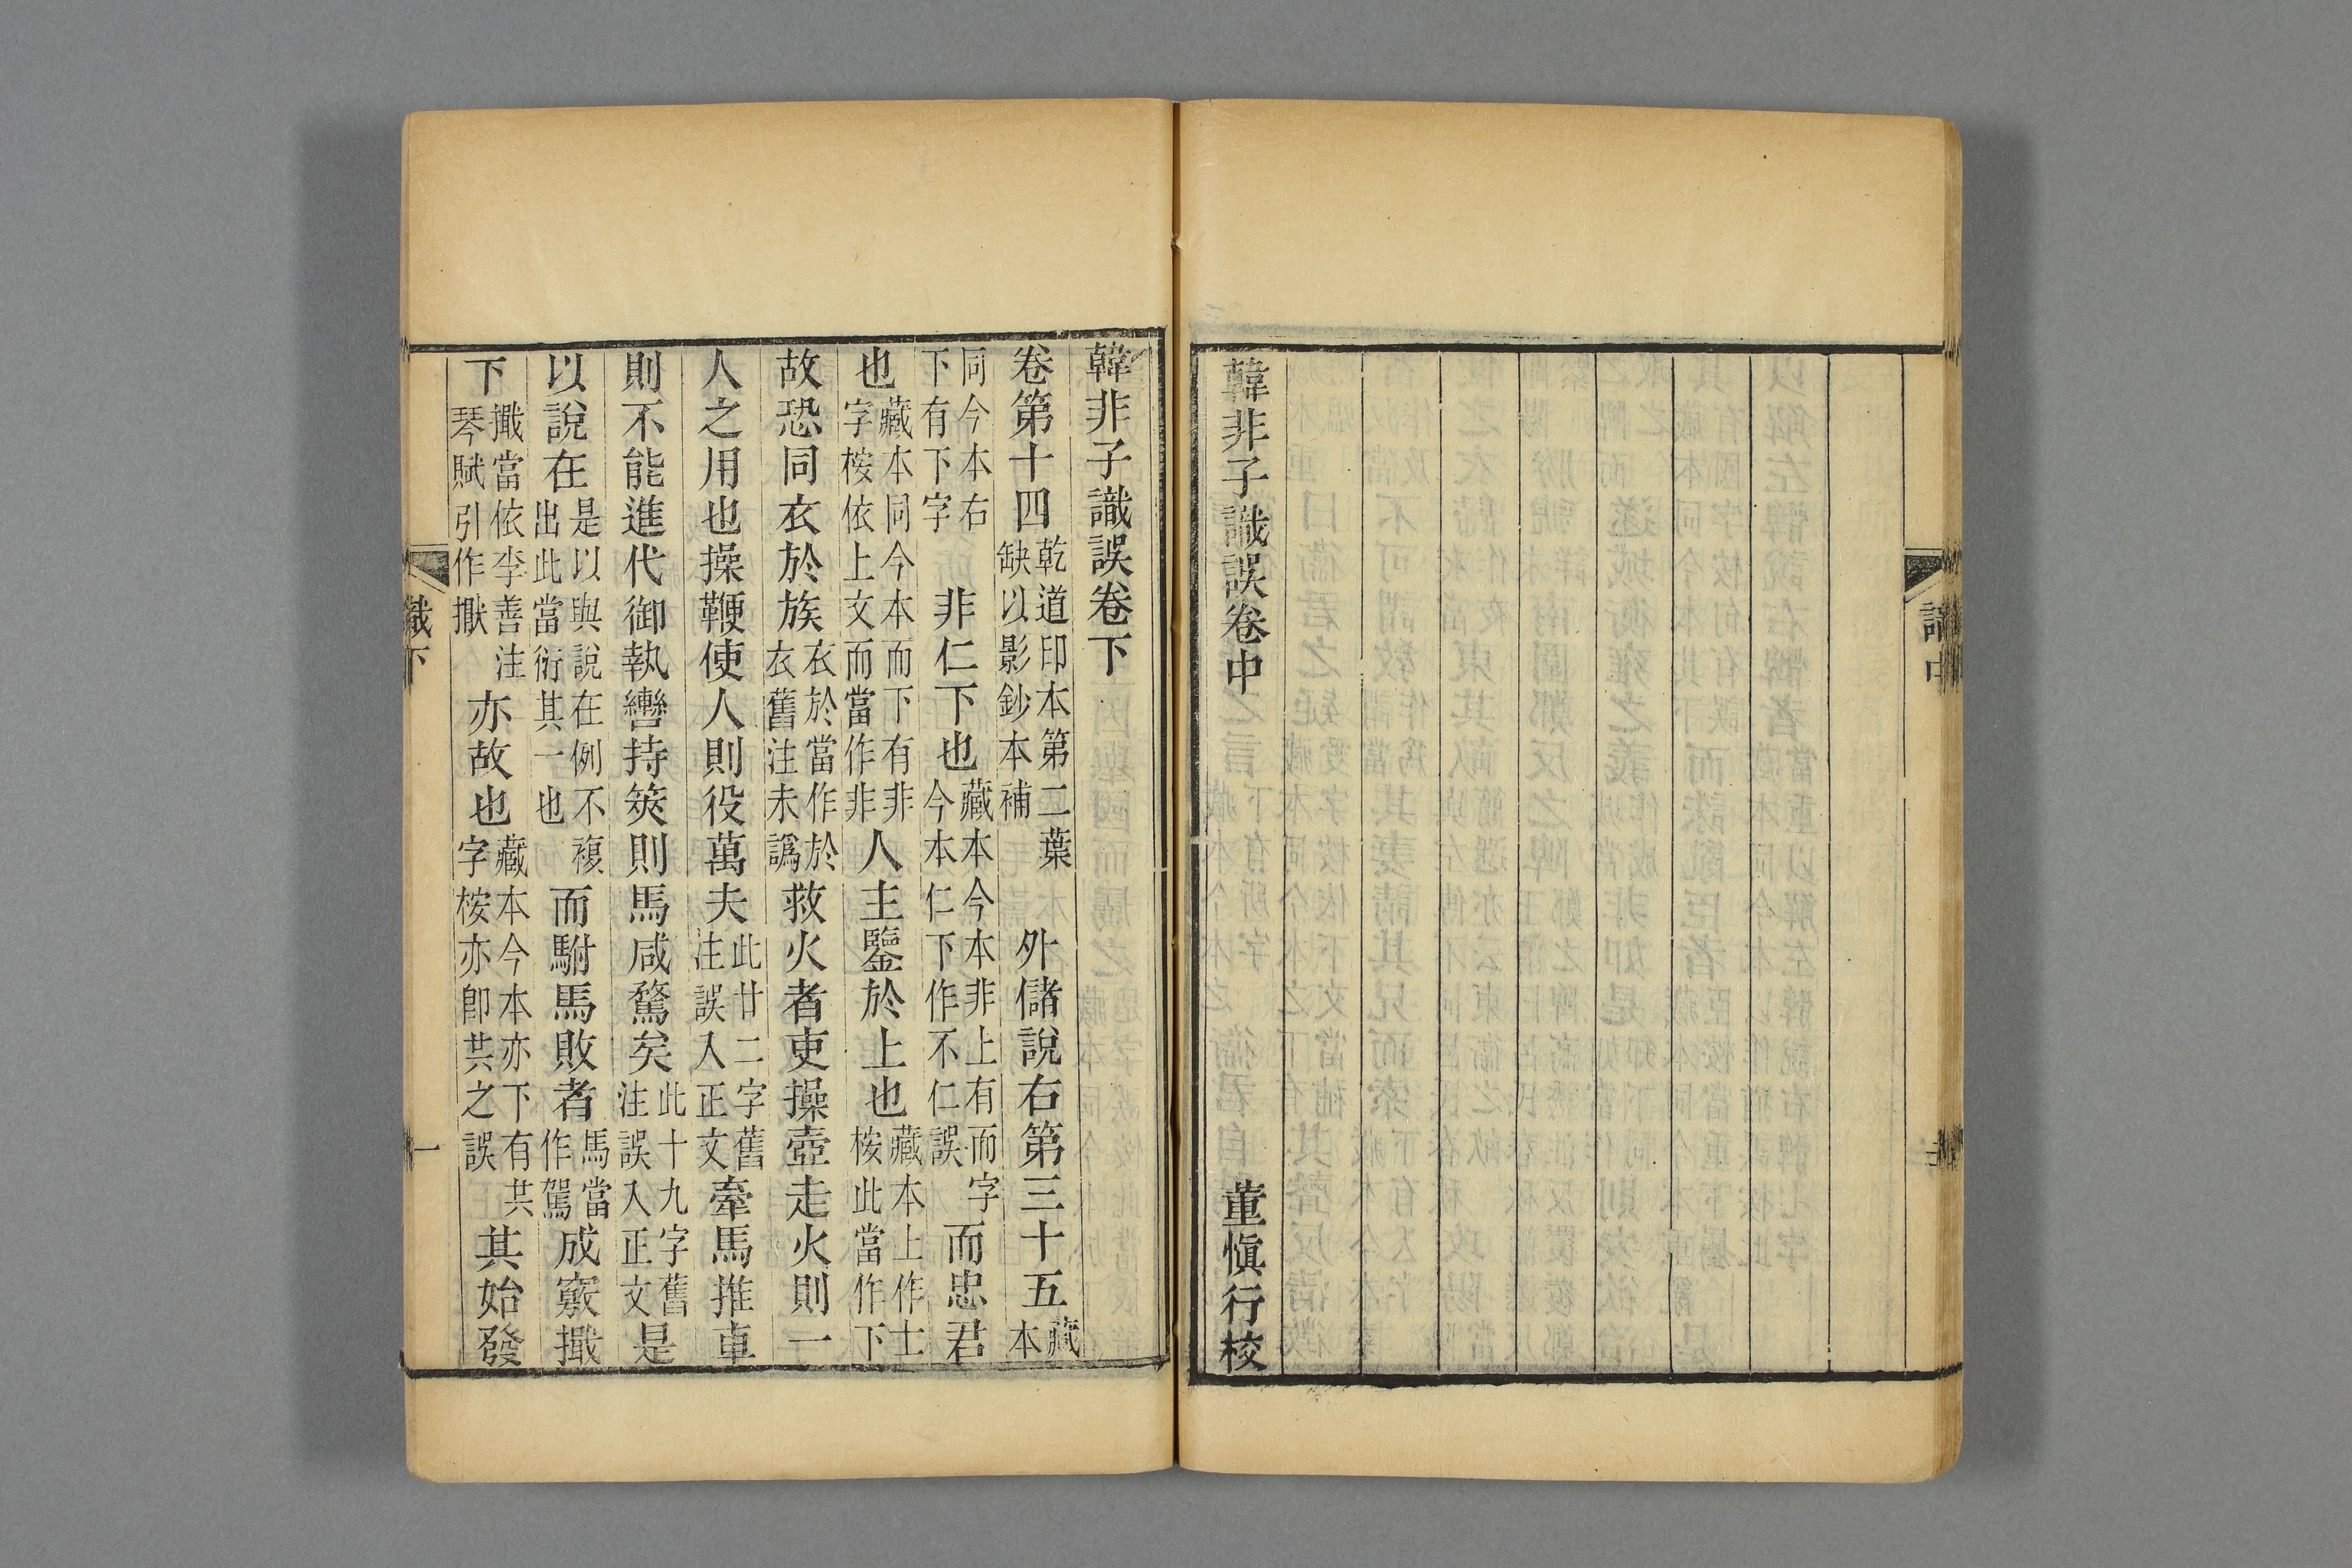 識中
韓非子識誤卷中 董愼行校
韓非子識誤卷下
卷第十四乾道印本第二葉缺以影鈔本補 外儲說右第三十五藏本
同今本右下有下字 非仁下也藏本今本非上有而字今本仁下作不仁誤 而忠君
也藏本同今本而下有非字桉依上文而當作非人主鑒於上也藏本上作士桉此當作下
故恐同衣於族衣於當作於衣舊注未譌救火者吏操壺走火則一
人之用也操鞭使人則役萬夫此廿二字舊注誤入正文牽馬推車
則不能進代御執轡持筴則馬咸騖矣此十九字舊注誤入正文是
以說在是以與說在例不複出此當衍其一也 而駙馬敗者馬當作駕成竅擑
下擑當依李善注琴賦引作擫 亦故也藏本今本亦下有共字桉亦卽共之誤 其始發
識下
一